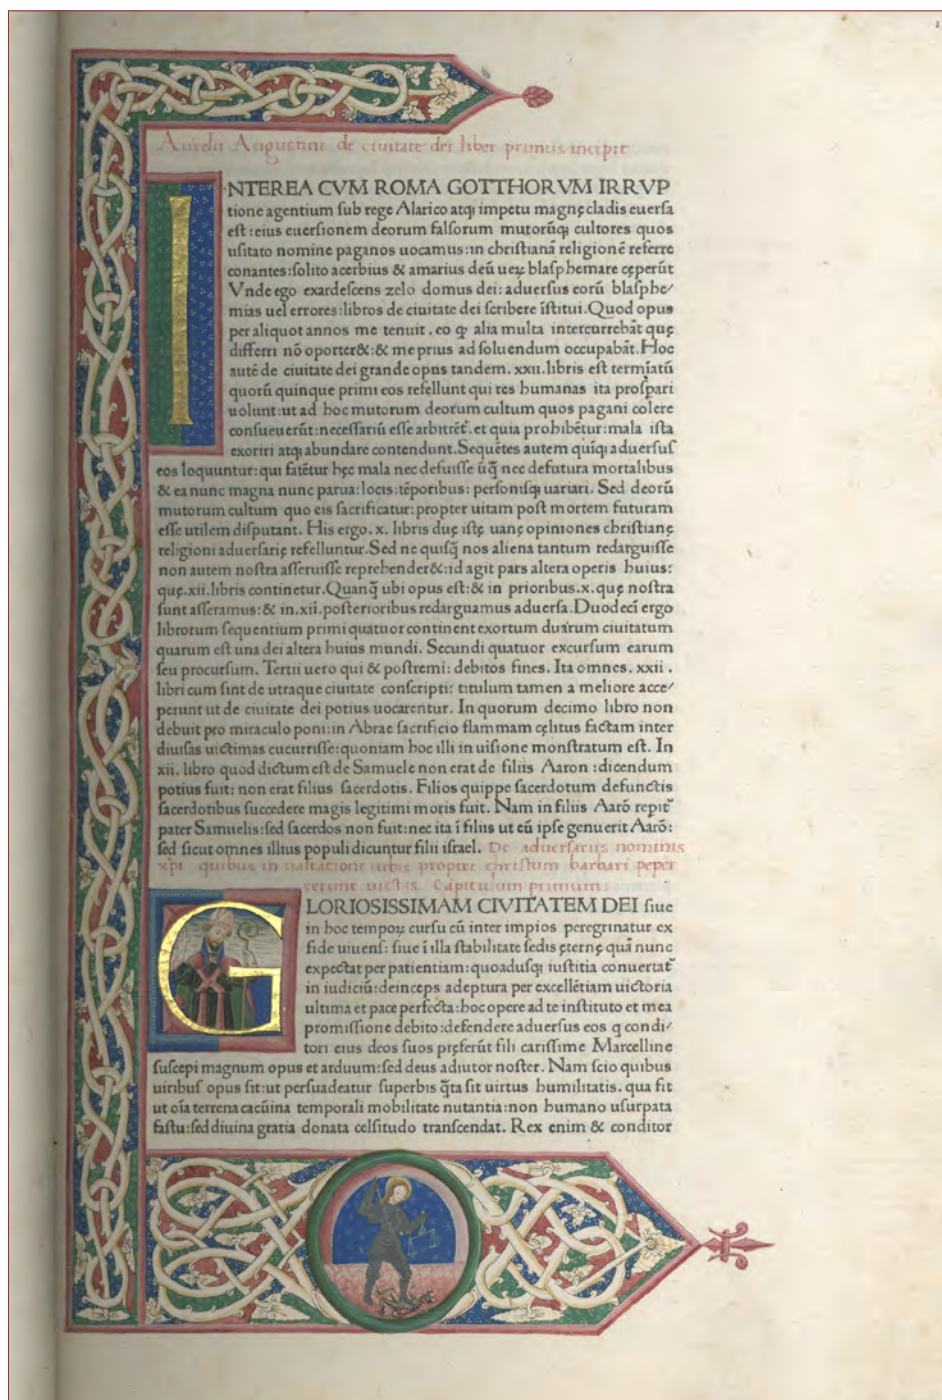 Aurelii Augustini de ciuitate dei liber primus incipit
INTEREA CVM ROMA GOTTHORVM IRRVP
tione agentium sub rege Alarico atqꝫ impetu magnę cladis euersa
est : eius euersionem deorum falsorum mutorūqꝫ cultores quos
usitato nomine paganos uocamus : in christianā religionē referre
conantes : solito acerbius & amarius deū ueꝝ blasphemare cęperūt
Vnde ego exardescens zelo domus dei : aduersus eorū blasphe/
mias uel errores : libros de ciuitate dei scribere īstitui. Quod opus
per aliquot annos me tenuit . eo ꝙ alia multa intercurrebāt quę
differri nō oporter& : & me prius ad soluendum occupabāt. Hoc
autē de ciuitate dei grande opus tandem . xxii. libris est termīatū
quorū quinque primi eos refellunt qui res humanas ita prospari
uolunt : ut ad hoc mutorum deorum cultum quos pagani colere
consueuerūt : necessariū esse arbitrēt᷑ . et quia prohibētur : mala ista
exoriri atqꝫ abundare contendunt. Sequētes autem quīqꝫ aduersus
eos loquuntur : qui fatētur hęc mala nec defuisse ūq̄ nec defutura mortalibus
& ea nunc magna nunc parua : locis : tēporibus : personisqꝫ uariari. Sed deorū
mutorum cultum quo eis sacrificatur : propter uitam post mortem futuram
esse utilem disputant. His ergo . x. libris duę istę uanę opiniones christianę
religioni aduersarię refelluntur. Sed ne quisq̄ nos aliena tantum redarguisse
non autem nostra asseruisse reprehender& : id agit pars altera operis huius :
quę .xii. libris continetur. Quanq̄ ubi opus est : & in prioribus .x. quę nostra
sunt asseramus : & in .xii. posterioribus redarguamus aduersa. Duodecī ergo
librorum sequentium primi quatuor continent exortum duarum ciuitatum
quarum est una dei altera huius mundi. Secundi quatuor excursum earum
seu procursum. Tertii uero qui & postremi : debitos fines. Ita omnes . xxii .
libri cum sint de utraque ciuitate conscripti : titulum tamen a meliore acce/
perunt ut de ciuitate dei potius uocarentur. In quorum decimo libro non
debuit pro miraculo poni : in Abrae sacrificio flammam cęlitus factam inter
diuisas uictimas cucurrisse : quoniam hoc illi in uisione monstratum est. In
xii. libro quod dictum est de Samuele non erat de filiis Aaron : dicendum
potius fuit : non erat filius sacerdotis. Filios quippe sacerdotum defunctis
sacerdotibus succedere magis legitimi moris fuit. Nam in filiis Aarō repit᷑
pater Samuelis : sed sacerdos non fuit : nec ita ī filiis ut eū ipse genuerit Aarō :
sed sicut omnes illius populi dicuntur filii israel. De aduersariis nominis
xp̄i quibus in uastatione urbis propter christum barbari peper
cerunt uictis. Capitulum primum :
GLORIOSISSIMAM CIVITATEM DEI siue
in hoc tempoꝝ cursu cū inter impios peregrinatur ex
fide uiuens : siue ī illa stabilitate sedis ęternę quā nunc
expectat per patientiam : quoadusqꝫ iustitia conuertat᷑
in iudiciū : deinceps adeptura per excellētiam uictoria
ultima et pace perfecta : hoc opere ad te instituto et mea
promissione debito : defendere aduersus eos q condi/
tori eius deos suos pręferūt fili carissime Marcelline
suscepi magnum opus et arduum : sed deus adiutor noster. Nam scio quibus
uiribus opus sit : ut persuadeatur superbis q̄ta sit uirtus humilitatis . qua fit
ut oīa terrena cacūina temporali mobilitate nutantia : non humano usurpata
fastu : sed diuina gratia donata celsitudo transcendat. Rex enim & conditor